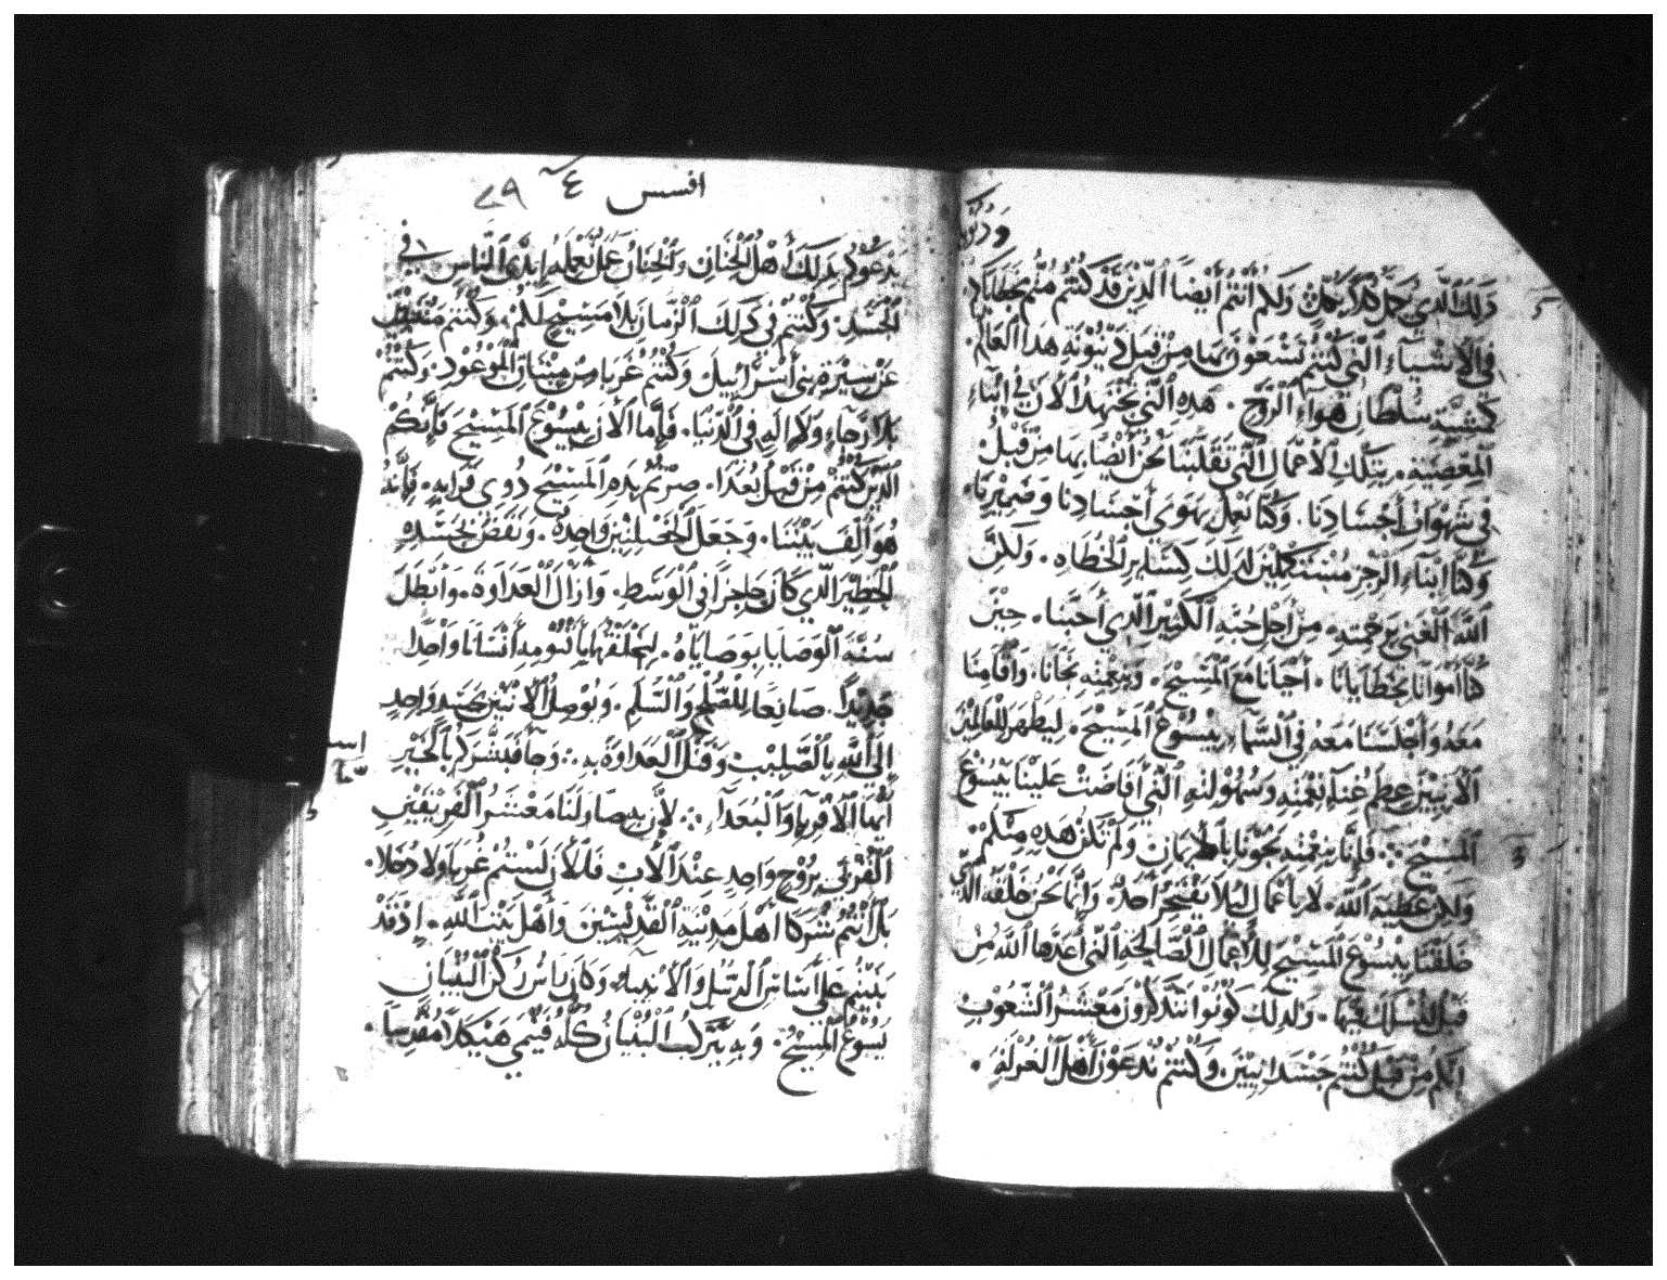 ذلك الذي وأنتم أيضا الذين قد كنتم متم بخطاياكم
في الأشياء التي كنتم تسعون بها من قبل دنيونة هذا العالم.
كمشية سلطان هواء الروح. هذه التي تجتهد الآن في ابناء
المعصية. بتلك الأعمال التي تقلبنا نحن أيضا بها من قبل
في شهوات أجسادنا. وكنا نعمل بهوى أجسادنا وضميرنا.
وكنا ابناء الرجز مستكملين لذلك كسائر الخطاه. ولكن
الله الغني برحمته. من أجل حبه الكثير الذي أحبنا. حين
كنا أمواتا بخطايانا. أحيانا مع المسيح. وبنعمته نجانا. وأقامنا
معه وأجلسنا معه في السماء بيسوع المسيح. ليظهر للعالمين
الآتيين عظم غناء نعمته وسهولته التي أفاضت علينا بيسوع
المسيح. فإنا بنعمته نجونا بالإيمان ولم تكن هذه منكم
ولكن عطية الله. لا بأعمال لئلا يفتخر أحد. وإنما نحن خلقه الذي
خلقنا بيسوع المسيح للأعمال الصالحة التي أعدها الله من
قبل لنسلك فيها. ولذلك كونوا تتذكرون معشر الشعوب
انكم من قبل كنتم جسدانيين. وكنتم تدعون أهل الغرلة.
افسس ٤
٧٩
يدعوكم بذلك أهل الختان والختان عمل تعمله ايدي الناس في
الجسد. وكنتم في ذلك الزمان بلا مسيح لكم. وكنتم
عن سيرة بني أسرائيل وكنتم غربا من ميثاق الموعود. وكنتم
بلا رجاء ولا اله في الدنيا. فإما الآن بيسوع المسيح فإنكم
الذين كنتم من قبل بعدا. صرتم بدم المسيح ذوي قرابه. فإنه
هو ألف بيننا. وجعل الخصلتين واحدة. ونقض بجسده
الحظير الذي كان حاجزا في الوسط. وأزال العداوة. وأبطل
سنة الوصايا بوصاياه. ليخلقهما بأقنومه أنسانا واحدا
جديدا. صانعا للصلح والسلم. ويوصل الاثنين بجسد واحد
إلى الله بالصليب وقتل العداوة به. وجاء فبشركم بالخير
أيها الأقربا والبعدآء. لإن به صار لنا معشر الفريقين
القربى بروح واحد عند الأب فالآن لستم غربا ولا دخلا.
بل أنتم شركا أهل مدينة القديسيين وأهل بيت الله. إذ قد
بنيتم على أساس الرسل والأنبياء وكان راس ركن البنيان
يسوع المسيح. وبه يتركب البنيان كله فينمي هيكلا مقدسا.